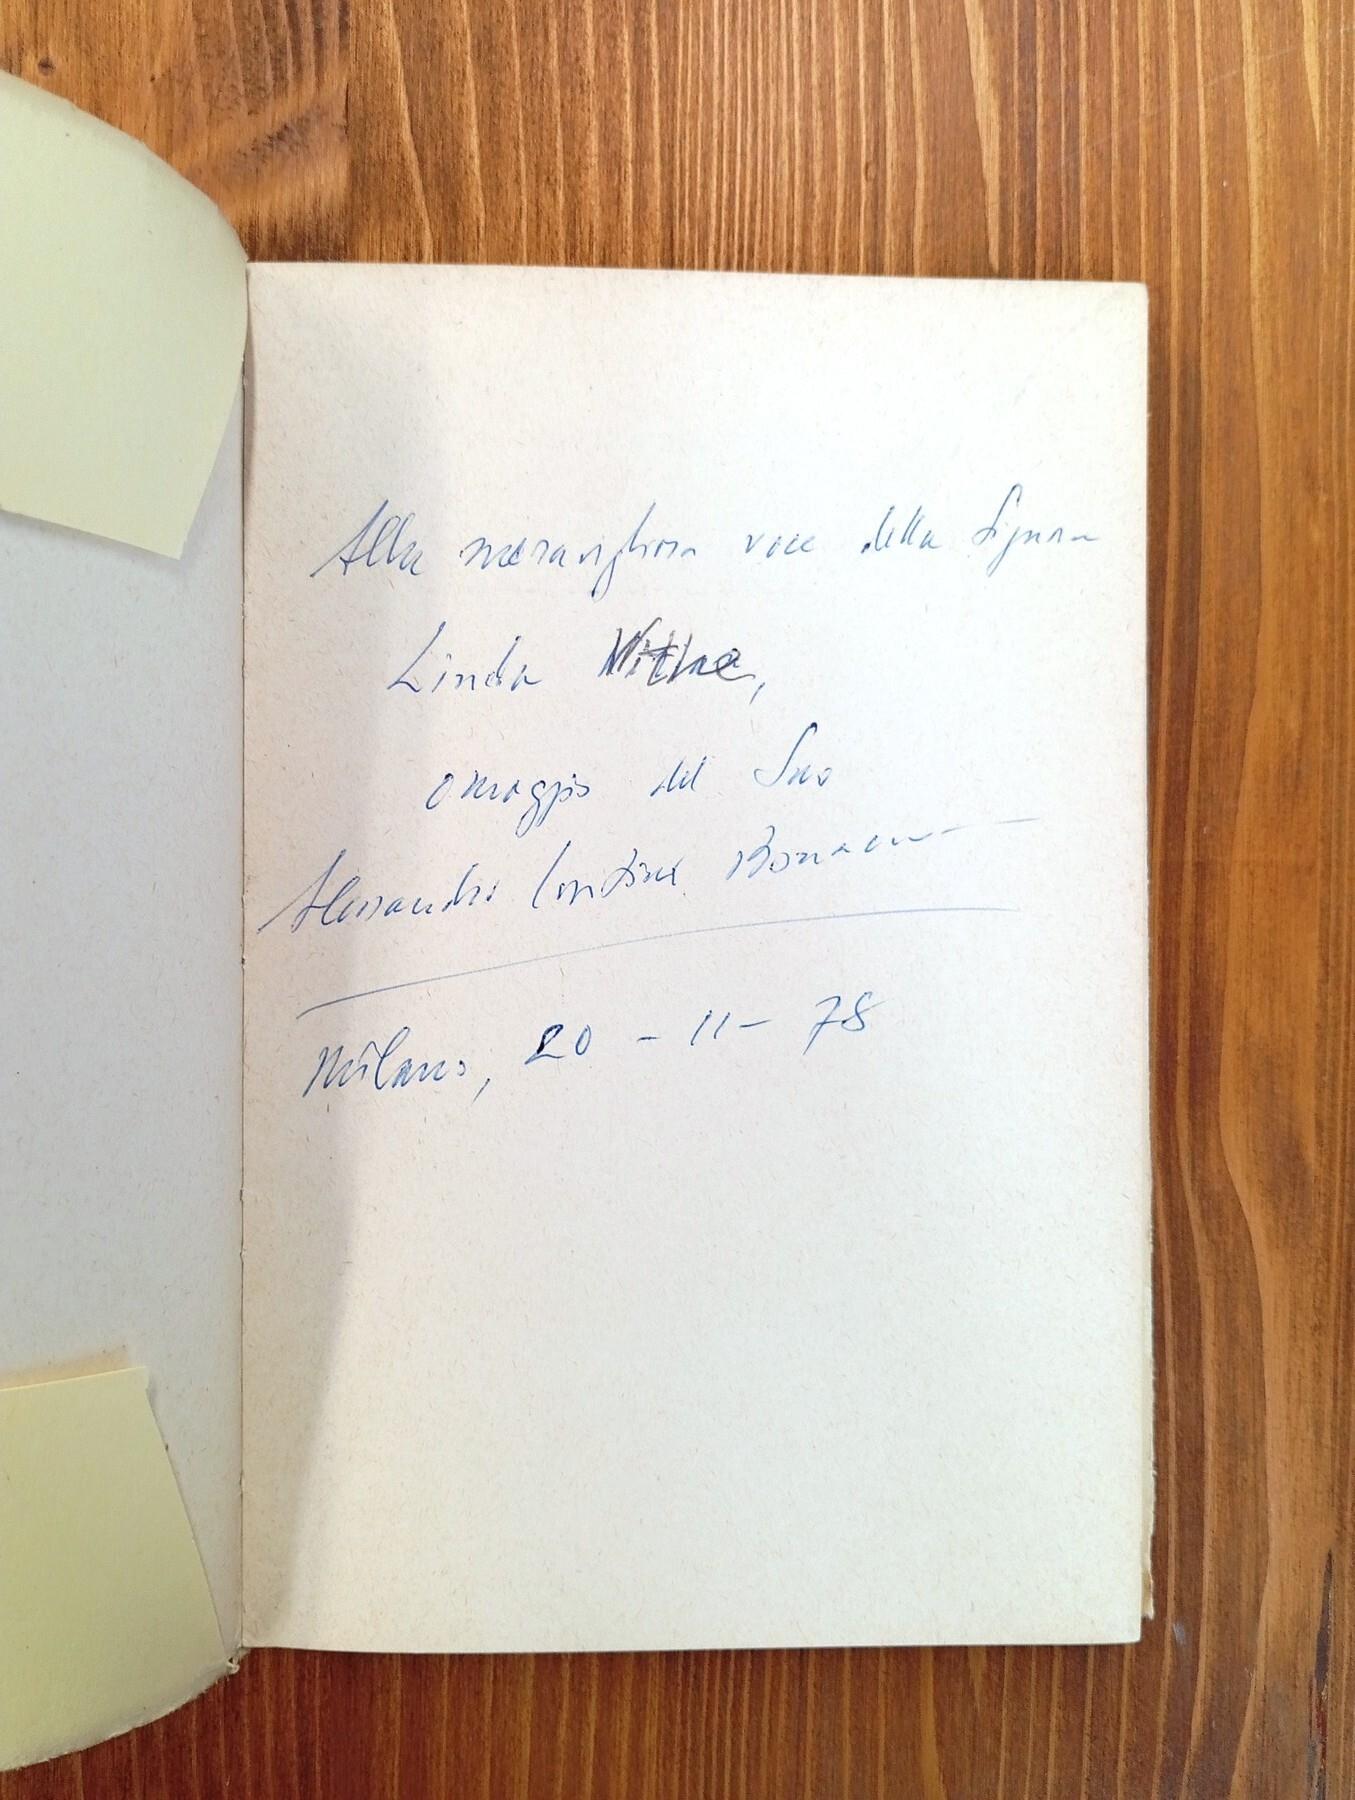 Alla meravigliosa voce della Signora
Linda
omaggio del Suo
Alessandro Cortese
Milano, 20 - 11 - 78